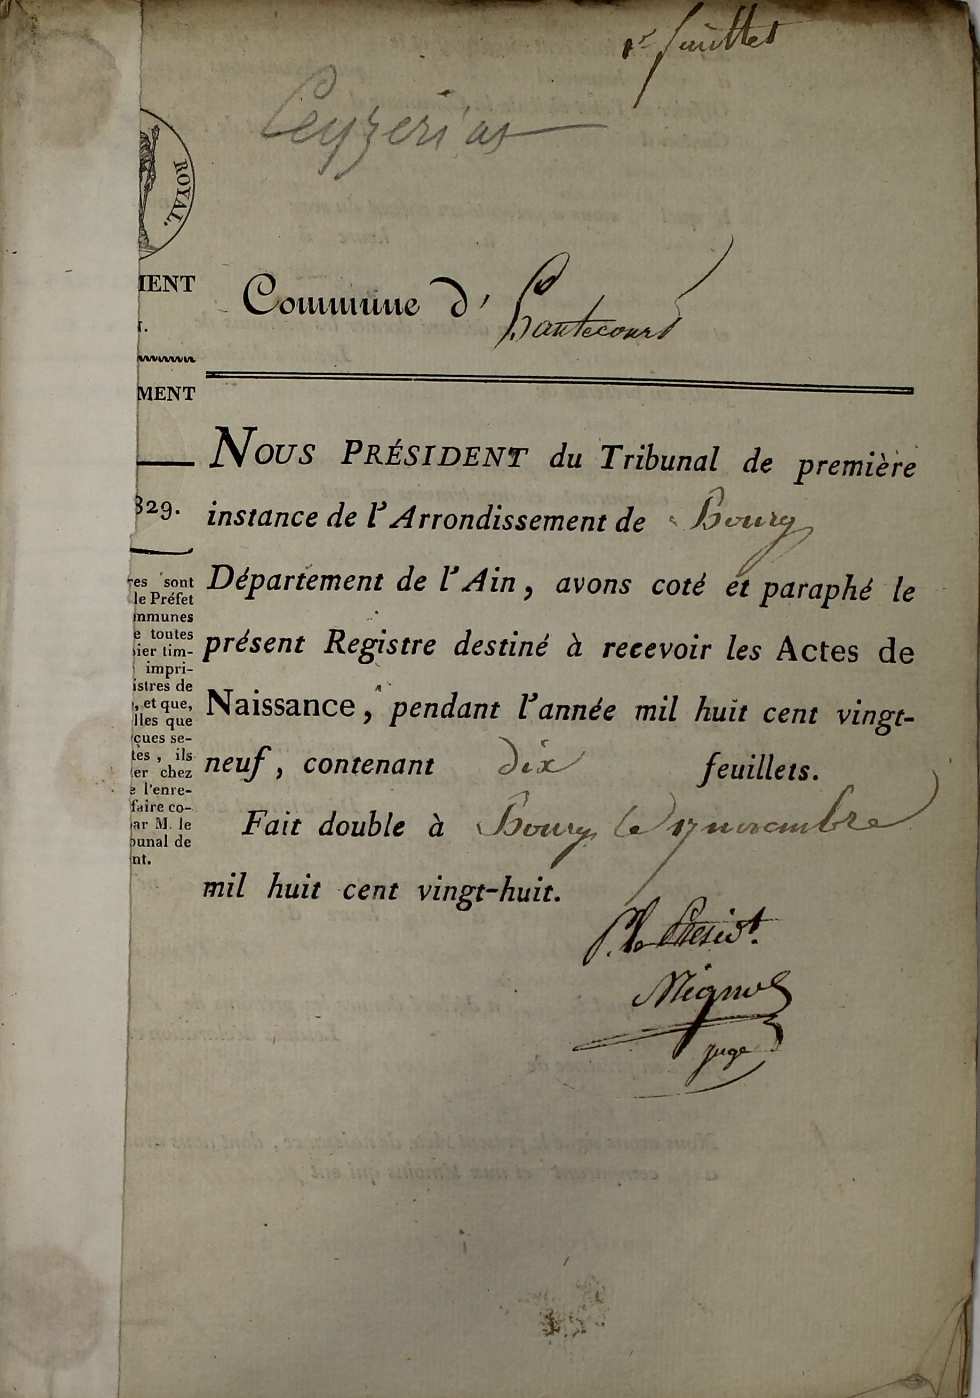 1er feuillet
Ceyzeriat
ROYAL.
MENT
MENT
829.
res sont
le Préfet
mmunes
e toutes
ier tim-
impri-
istres de
, et que,
lles que
çues se-
tès, ils
er chez
e l'enre-
faire co-
ar M. le
bunal de
nt.
Commune d' hautecourt
NOUS PRÉSIDENT du Tribunal de première
instance de l'Arrondissement de Bourg
Département de l'Ain, avons coté et paraphé le
présent Registre destiné à recevoir les Actes de
Naissance, pendant l'année mil huit cent vingt-
neuf, contenant dix feuillets.
Fait double à Bourg le 17 novembre
mil huit cent vingt-huit.
P. le Présidt.
juge